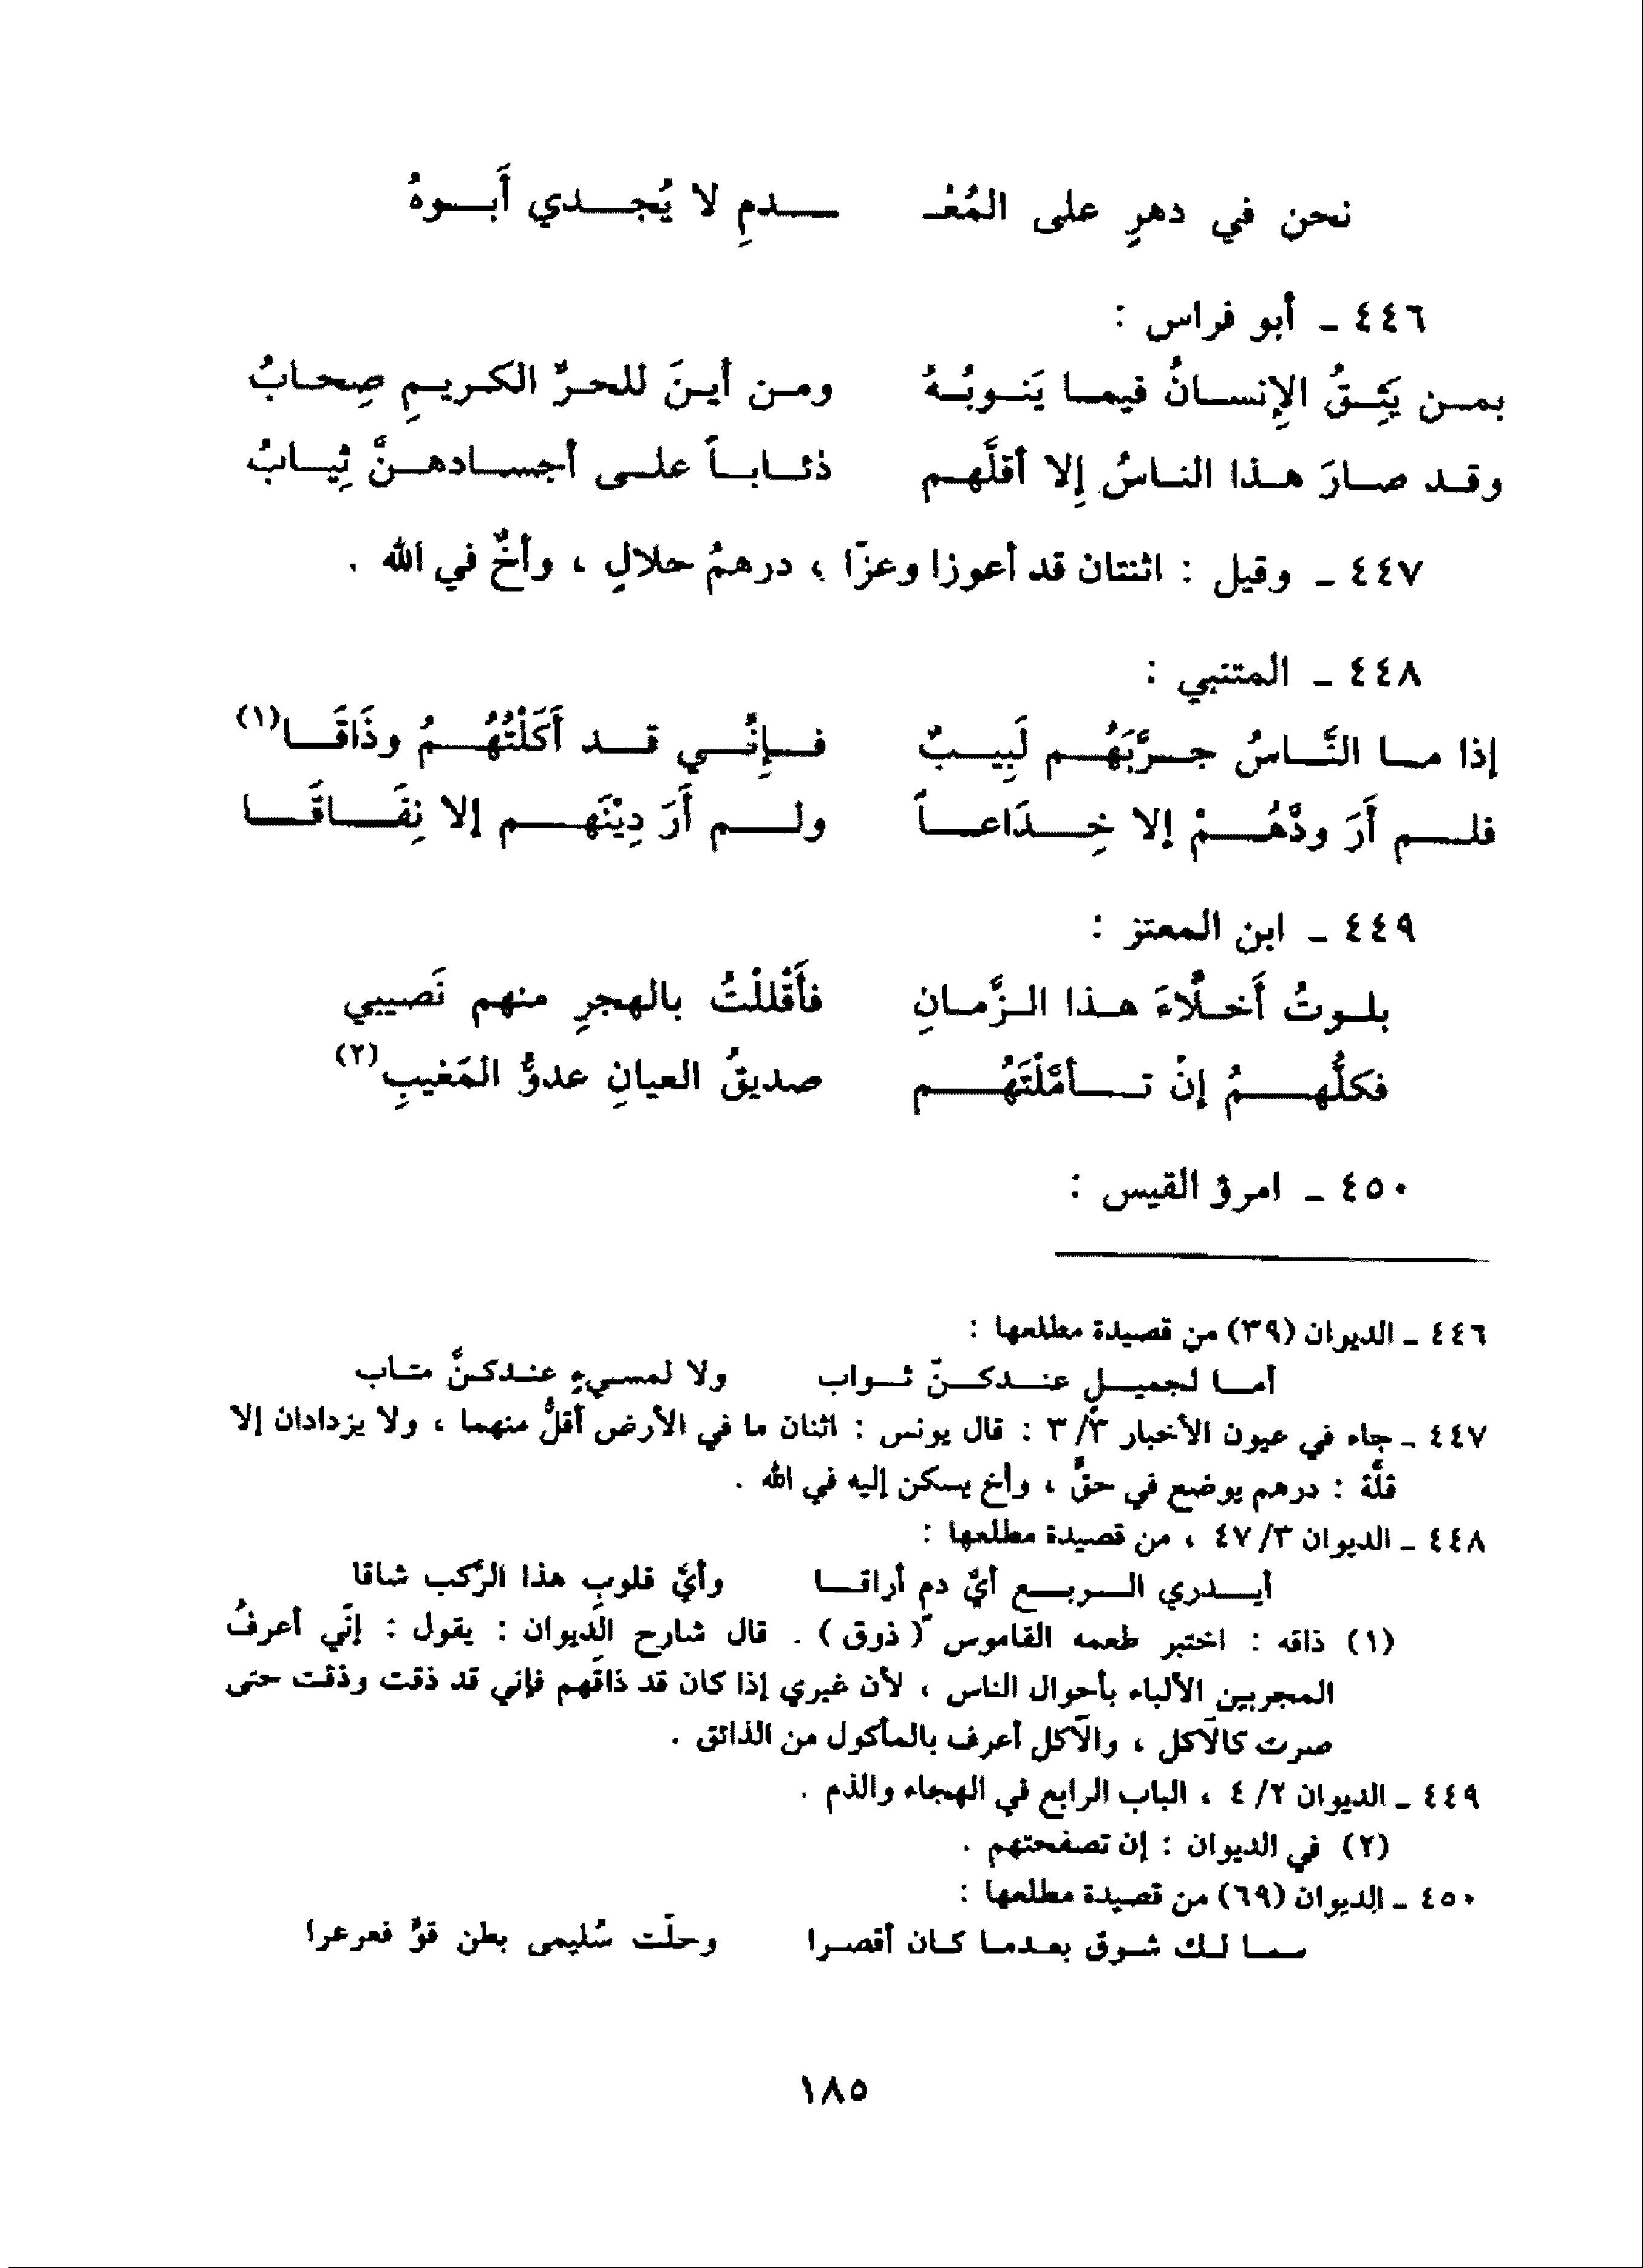 نحن في دهرٍ على المُعْـ ـدمِ لا يُجـدي أَبـوهُ
٤٤٦ ـ أبو فراس :
بمن يَثِقُ الإِنسانُ فيما يَنوبُهُ ومن أينَ للحرِّ الكريمِ صِحابُ
وقد صارَ هذا الناسُ إِلا أقلَّهم ذئاباً على أجسادهنَّ ثِيابُ
٤٤٧ ـ وقيل : اثنتان قد أعوزا وعزّا ، درهمُ حلالٍ ، وأخٌ في الله .
٤٤٨ ـ المتنبي :
إذا ما النَّاسُ جرَّبَهُم لَبِيبٌ فإِنِّي قد أَكَلْتُهُمُ وذَاقَا(١)
فلم أَرَ ودَّهُمْ إلا خِدَاعاً ولم أَرَ دِيْنَهم إلا نِفَاقَا
٤٤٩ ـ ابن المعتز :
بلوتُ أَخلَّاءَ هذا الزَّمانِ فأَقْللْتُ بالهجرِ منهم نَصيبي
فكلُّهمُ إنْ تأمَّلْتَهُم صديقُ العيانِ عدوُّ المَغيبِ(٢)
٤٥٠ ـ امرؤ القيس :
٤٤٦ ـ الديوان (٣٩) من قصيدة مطلعها :
أما لجميلٍ عندكنّ ثواب ولا لمسيءٍ عندكنَّ متاب
٤٤٧ ـ جاء في عيون الأخبار ٣/٣ : قال يونس : اثنان ما في الأرض أقلُّ منهما ، ولا يزدادان إلا
قلَّة : درهم يوضع في حقٍّ ، وأخ يسكن إليه في الله .
٤٤٨ ـ الديوان ٤٧/٣ ، من قصيدة مطلعها :
أيدري الربع أيَّ دمٍ أراقا وأيَّ قلوبِ هذا الرّكب شاقا
(١) ذاقه : اختبر طعمه القاموس ( ذوق ) . قال شارح الديوان : يقول : إنّي أعرفُ
المجربين الألباء بأحوال الناس ، لأن غيري إذا كان قد ذاقهم فإني قد ذقت وذقت حتى
صرت كالآكل ، والآكل أعرف بالمأكول من الذائق .
٤٤٩ ـ الديوان ٤/٢ ، الباب الرابع في الهجاء والذم .
(٢) في الديوان : إن تصفحتهم .
٤٥٠ ـ الديوان (٦٩) من قصيدة مطلعها :
سما لك شوق بعدما كان أقصرا وحلّت سُليمى بطن قوٍّ فعرعرا
١٨٥